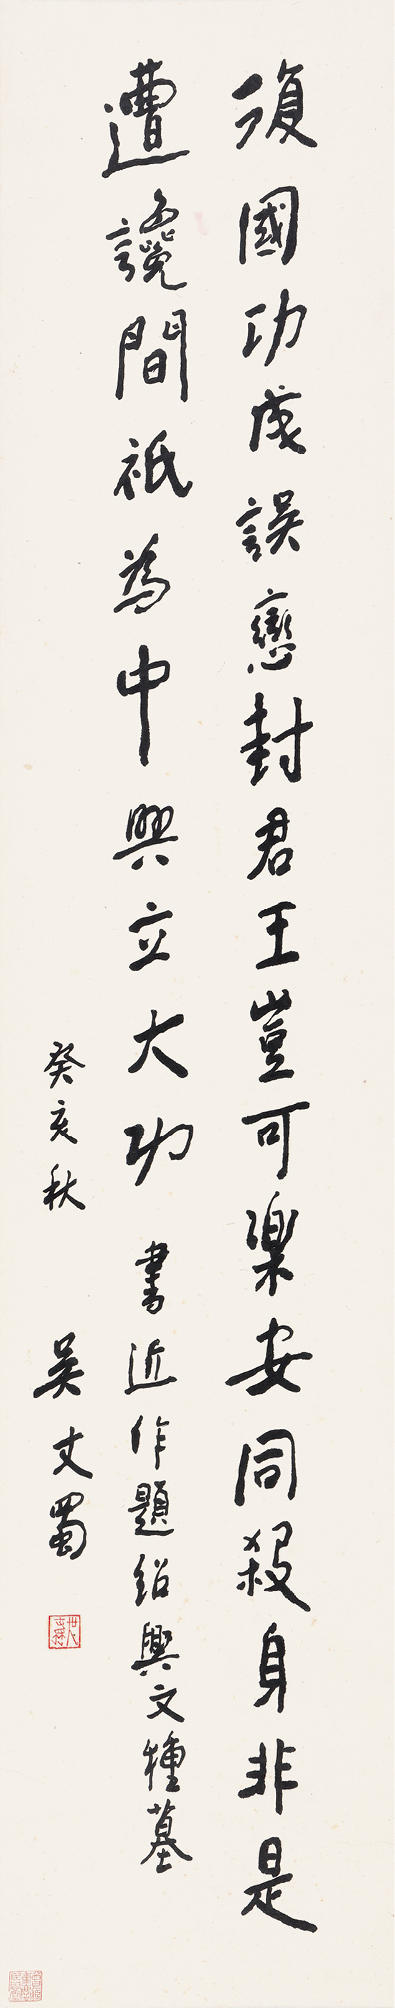 復國功成誤戀封君王豈可樂安同殺身非是
遭讒間祇為中興立大功 書近作題紹興文種墓
癸亥秋 吳丈蜀